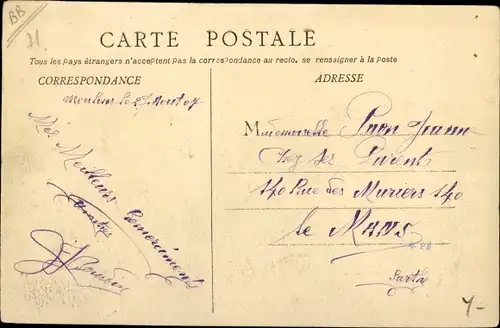 BB
CARTE POSTALE
Tous les pays étrangers n'acceptent pas la correspondance au recto. se renseigner à la poste
CORRESPONDANCE
ADRESSE
Moulins le 27 Aout 07
Mes Meilleurs
Remerciments
Mademoiselle
Chez Ses Parents
140 Rue des Muriers 140
le MANS
Sarthe